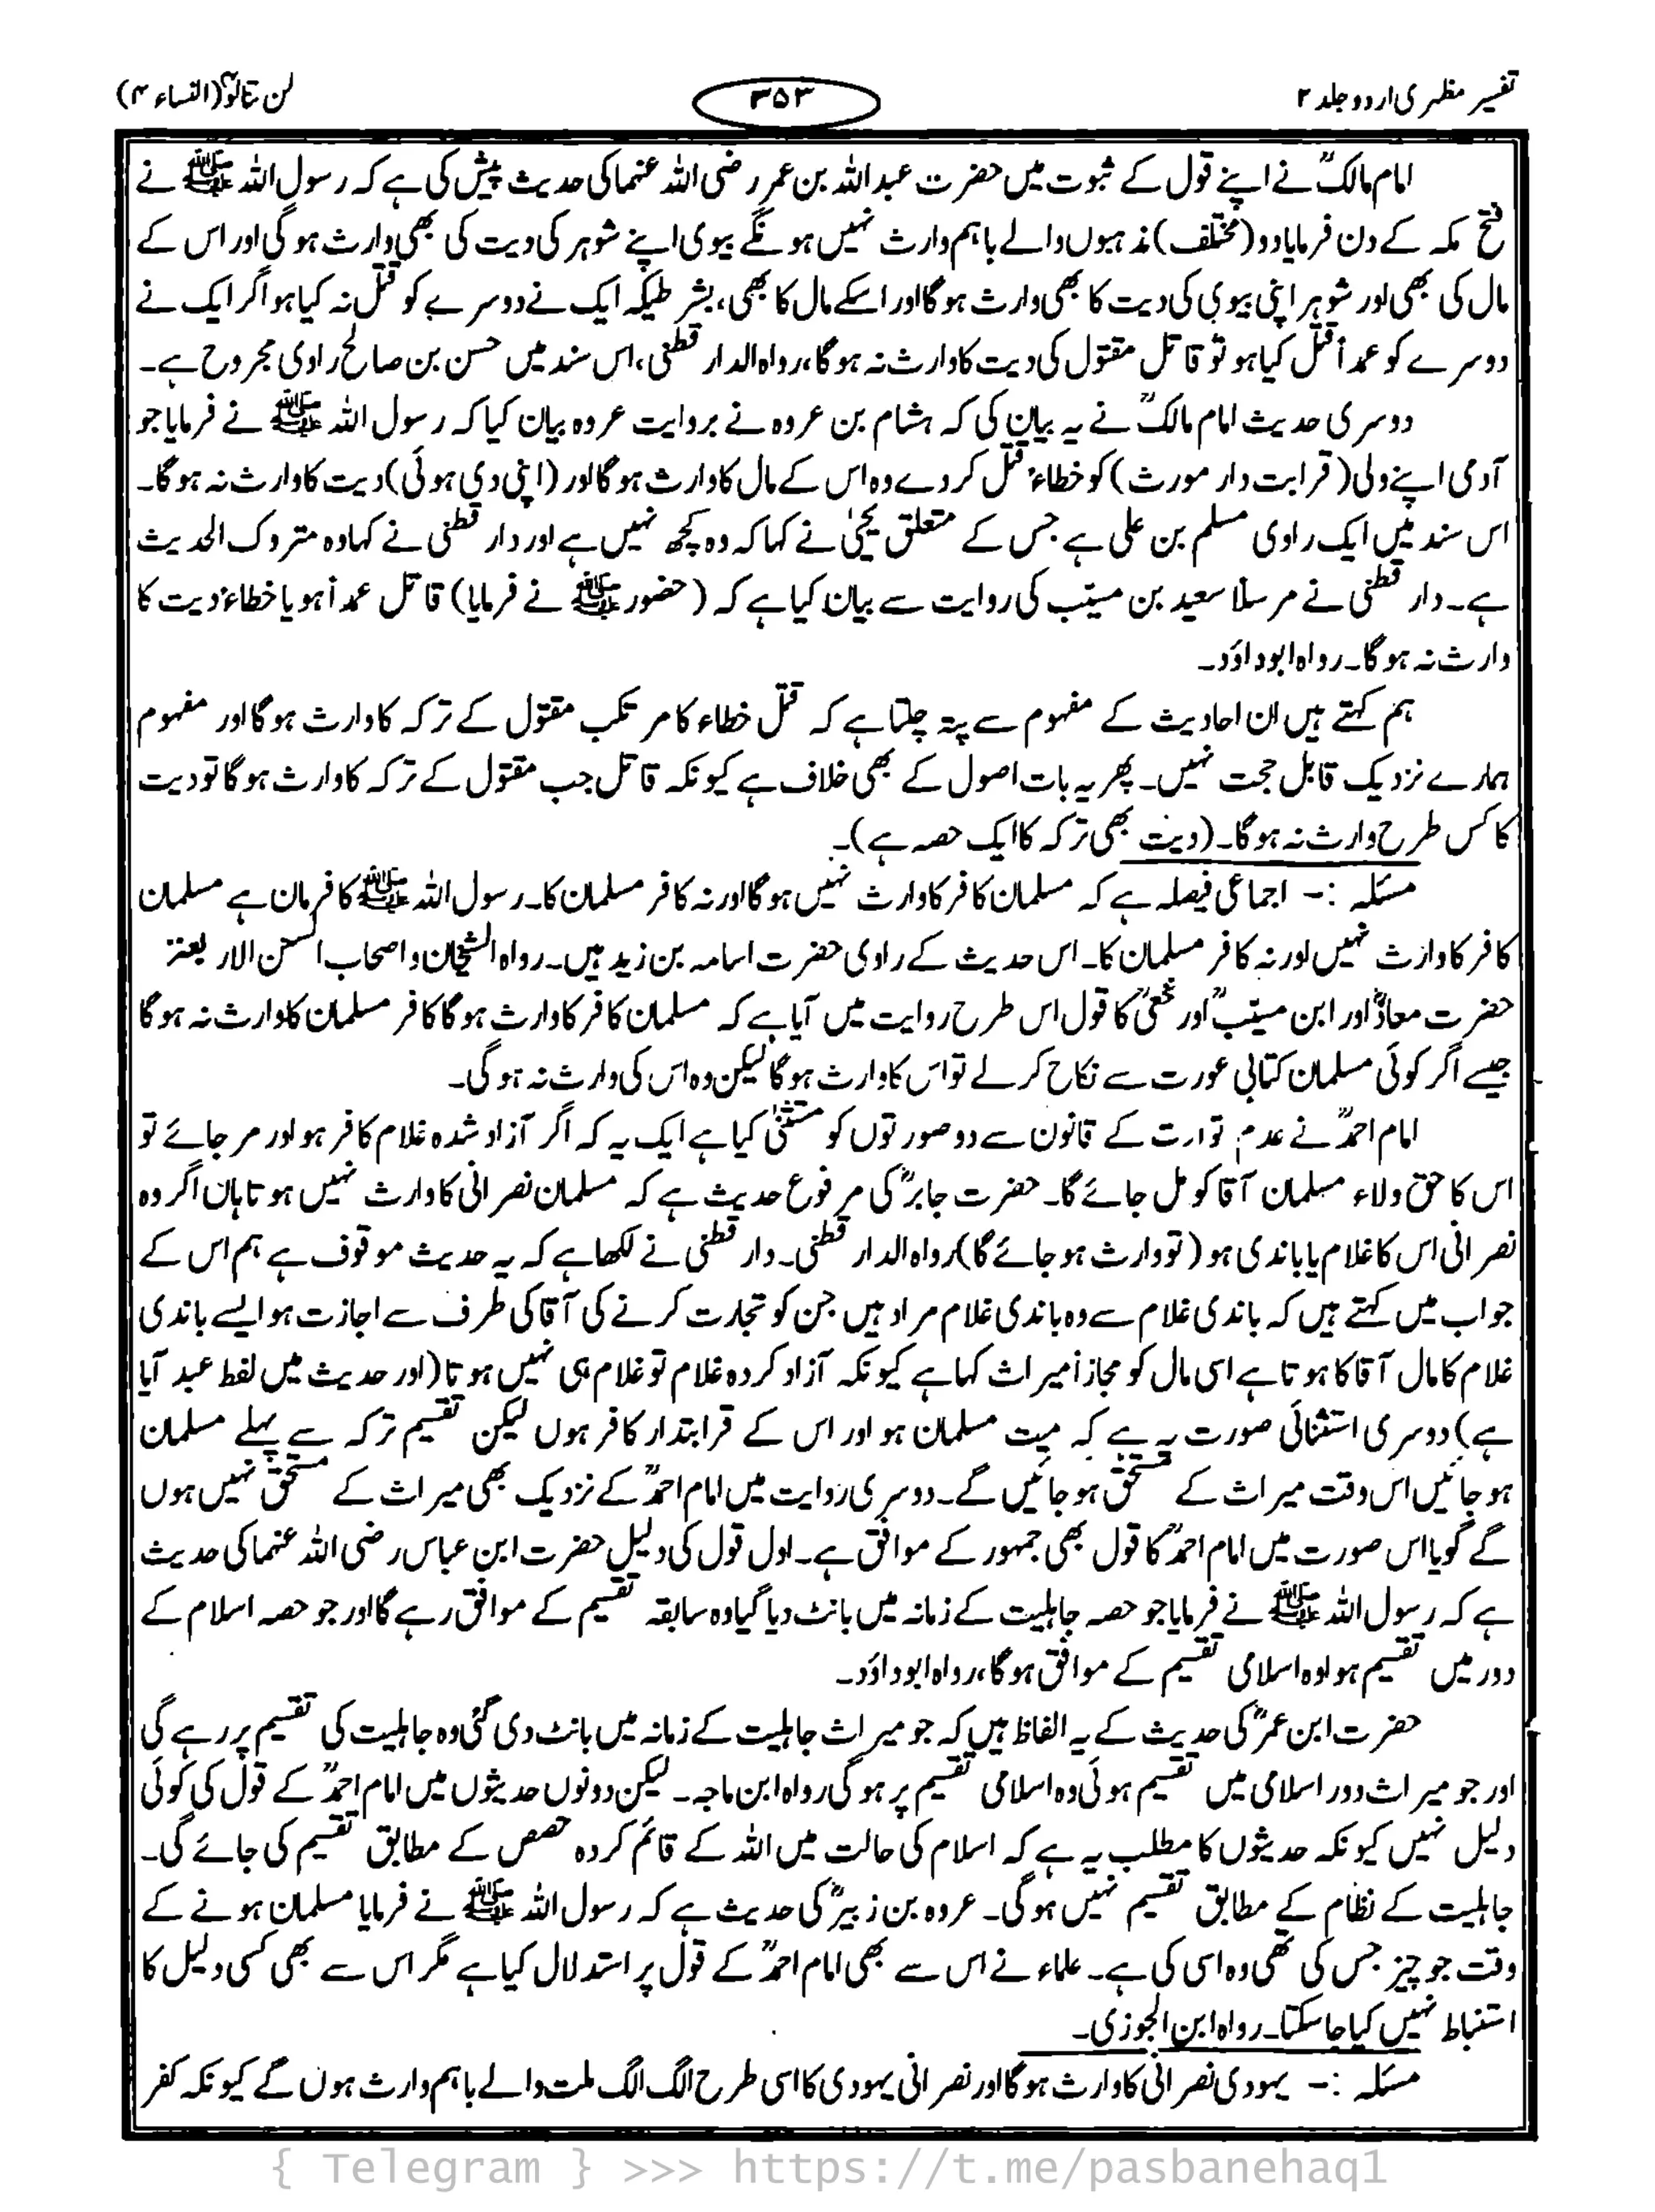 تفسیر مظہری اردو جلد ۲
۳۵۳
لن تنالوا (النساء ۴)
امام مالکؒ نے اپنے قول کے ثبوت میں حضرت عبداللہ بن عمر رضی اللہ عنہما کی حدیث پیش کی ہے کہ رسول اللہ ﷺ نے
فتح مکہ کے دن فرمایا دو (مختلف) مذہبوں والے باہم وارث نہیں ہونگے بیوی اپنے شوہر کی دیت کی بھی وارث ہوگی اور اس کے
مال کی بھی اور شوہر اپنی بیوی کی دیت کا بھی وارث ہوگا اور اسکے مال کا بھی، بشرطیکہ ایک نے دوسرے کو قتل نہ کیا ہو اگر ایک نے
دوسرے کو عمداً قتل کیا ہو تو قاتل مقتول کی دیت کا وارث نہ ہوگا، رواہ الدار قطنی، اس سند میں حسن بن صالح راوی مجروح ہے۔
دوسری حدیث امام مالکؒ نے یہ بیان کی کہ ہشام بن عروہ نے بروایت عروہ بیان کیا کہ رسول اللہ ﷺ نے فرمایا جو
آدمی اپنے ولی (قرابت دار مورث) کو خطاءً قتل کر دے وہ اس کے مال کا وارث ہوگا اور (اپنی دی ہوئی) دیت کا وارث نہ ہوگا۔
اس سند میں ایک راوی مسلم بن علی ہے جس کے متعلق یحییٰ نے کہا کہ وہ کچھ نہیں ہے اور دار قطنی نے کہا وہ متروک الحدیث
ہے۔ دار قطنی نے مرسلاً سعید بن مسیّب کی روایت سے بیان کیا ہے کہ (حضور ﷺ نے فرمایا) قاتل عمداً ہو یا خطاءً دیت کا
وارث نہ ہوگا۔ رواہ ابوداؤد۔
ہم کہتے ہیں ان احادیث کے مفہوم سے پتہ چلتا ہے کہ قتل خطاء کا مرتکب مقتول کے ترکہ کا وارث ہوگا اور مفہوم
ہمارے نزدیک قابل حجت نہیں۔ پھر یہ بات اصول کے بھی خلاف ہے کیونکہ قاتل جب مقتول کے ترکہ کا وارث ہوگا تو دیت
کا کس طرح وارث نہ ہوگا۔ (دیت بھی ترکہ کا ایک حصہ ہے)۔
مسئلہ :- اجماعی فیصلہ ہے کہ مسلمان کافر کا وارث نہیں ہوگا اور نہ کافر مسلمان کا۔ رسول اللہ ﷺ کا فرمان ہے مسلمان
کافر کا وارث نہیں اور نہ کافر مسلمان کا۔ اس حدیث کے راوی حضرت اسامہ بن زید ہیں۔ رواہ الشیخان واصحاب السنن الاربعتہ
حضرت معاذؓ اور ابن مسیّبؒ اور نخعیؒ کا قول اس طرح روایت میں آیا ہے کہ مسلمان کافر کا وارث ہوگا کافر مسلمان کا وارث نہ ہوگا
جیسے اگر کوئی مسلمان کتابی عورت سے نکاح کر لے تو اس کا وارث ہوگا لیکن وہ اس کی وارث نہ ہوگی۔
امام احمدؒ نے عدم توارث کے قانون سے دو صورتوں کو مستثنیٰ کیا ہے ایک یہ کہ اگر آزاد شدہ غلام کافر ہو اور مر جائے تو
اس کا حق ولاء مسلمان آقا کو مل جائے گا۔ حضرت جابرؓ کی مرفوع حدیث ہے کہ مسلمان نصرانی کا وارث نہیں ہوتا ہاں اگر وہ
نصرانی اس کا غلام یا باندی ہو (تو وارث ہو جائے گا) رواہ الدار قطنی۔ دار قطنی نے لکھا ہے کہ یہ حدیث موقوف ہے ہم اس کے
جواب میں کہتے ہیں کہ باندی غلام سے وہ باندی غلام مراد ہیں جن کو تجارت کرنے کی آقا کی طرف سے اجازت ہو ایسے باندی
غلام کا مال آقا کا ہوتا ہے اسی مال کو مجازاً میراث کہا ہے کیونکہ آزاد کردہ غلام تو غلام ہی نہیں ہوتا (اور حدیث میں لفظ عبد آیا
ہے) دوسری استثنائی صورت یہ ہے کہ میت مسلمان ہو اور اس کے قرابتدار کافر ہوں لیکن تقسیم ترکہ سے پہلے مسلمان
ہو جائیں اس وقت میراث کے مستحق ہو جائیں گے۔ دوسری روایت میں امام احمدؒ کے نزدیک بھی میراث کے مستحق نہیں ہوں
گے گویا اس صورت میں امام احمدؒ کا قول بھی جمہور کے موافق ہے۔ اول قول کی دلیل حضرت ابن عباس رضی اللہ عنہما کی حدیث
ہے کہ رسول اللہ ﷺ نے فرمایا جو حصہ جاہلیت کے زمانہ میں بانٹ دیا گیا وہ سابقہ تقسیم کے موافق رہے گا اور جو حصہ اسلام کے
دور میں تقسیم ہوا وہ اسلامی تقسیم کے موافق ہوگا، رواہ ابوداؤد۔
حضرت ابن عمرؓ کی حدیث کے یہ الفاظ ہیں کہ جو میراث جاہلیت کے زمانہ میں بانٹ دی گئی وہ جاہلیت کی تقسیم پر رہے گی
اور جو میراث دور اسلامی میں تقسیم ہوئی وہ اسلامی تقسیم پر ہوگی رواہ ابن ماجہ۔ لیکن دونوں حدیثوں میں امام احمدؒ کے قول کی کوئی
دلیل نہیں کیونکہ حدیثوں کا مطلب یہ ہے کہ اسلام کی حالت میں اللہ کے قائم کردہ حصص کے مطابق تقسیم کی جائے گی۔
جاہلیت کے نظام کے مطابق تقسیم نہیں ہوگی۔ عروہ بن زبیرؓ کی حدیث ہے کہ رسول اللہ ﷺ نے فرمایا مسلمان ہونے کے
وقت جو چیز جس کی تھی وہ اسی کی ہے۔ علماء نے اس سے بھی امام احمدؒ کے قول پر استدلال کیا ہے مگر اس سے بھی کسی دلیل کا
استنباط نہیں کیا جا سکتا۔ رواہ ابن الجوزی۔
مسئلہ :- یہودی نصرانی کا وارث ہوگا اور نصرانی یہودی کا اسی طرح الگ الگ ملت والے باہم وارث ہوں گے کیونکہ کفر
{ Telegram } >>> https://t.me/pasbanehaq1